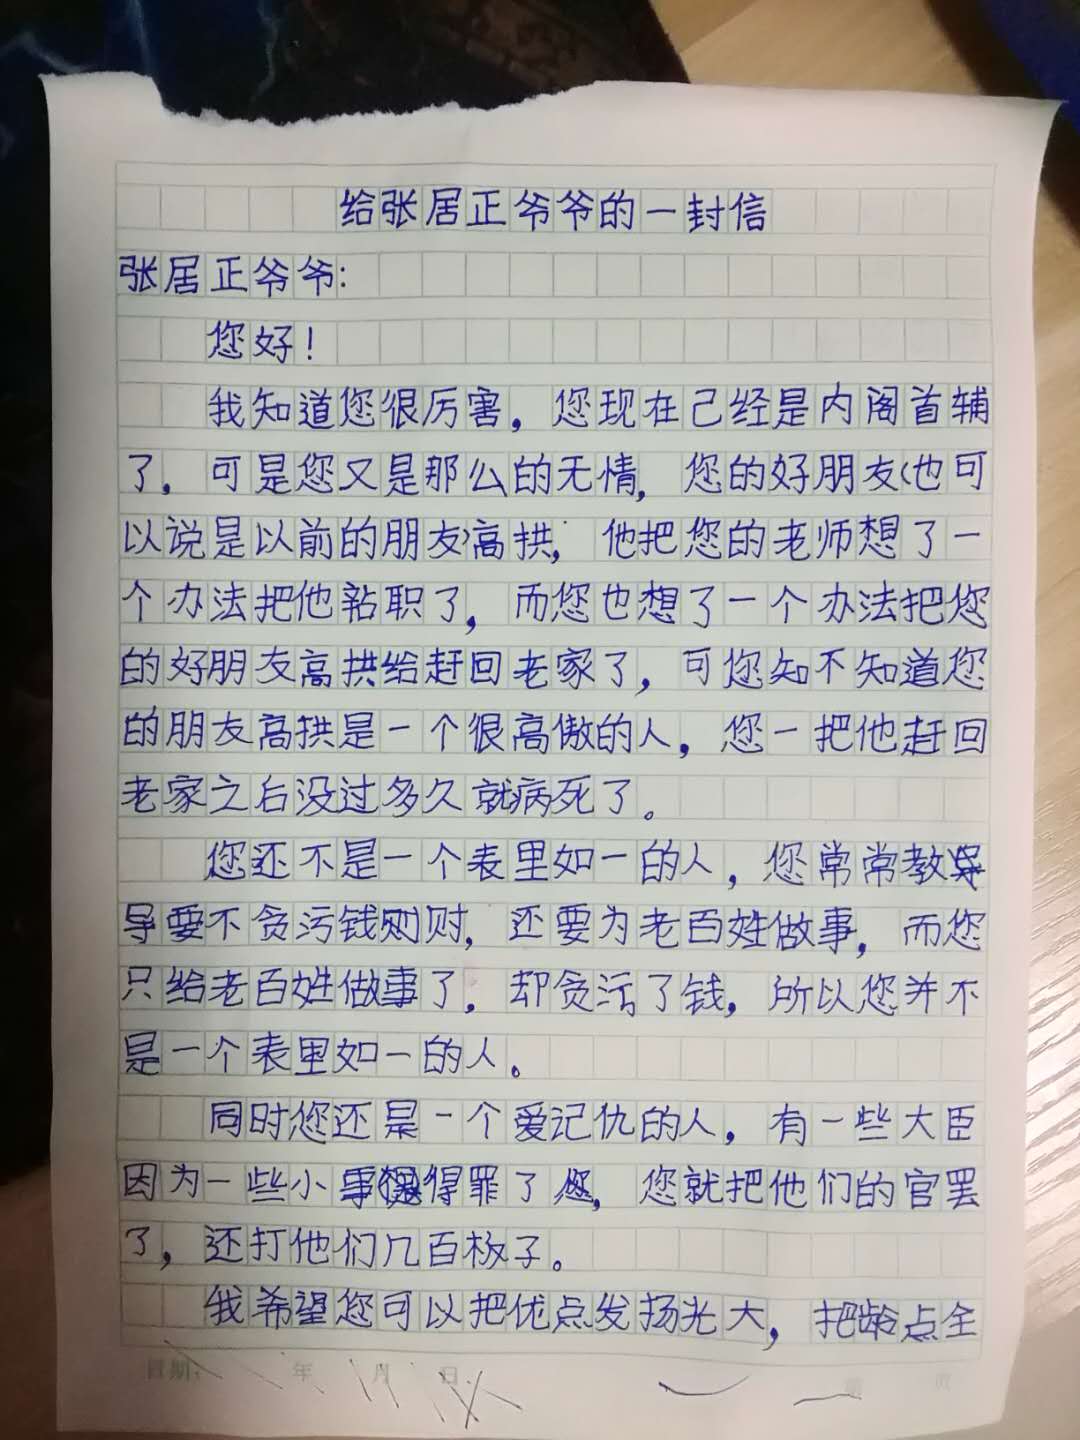 给张居正爷爷的一封信
张居正爷爷：
您好！
我知道您很厉害，您现在已经是内阁首辅
了，可是您又是那么的无情，您的好朋友（也可
以说是以前的朋友）高拱，他把您的老师想了一
个办法把他职了，而您也想了一个办法把您
的好朋友高拱给赶回老家了，可您知不知道您
的朋友高拱是一个很高傲的人，您一把他赶回
老家之后没过多久就病死了。
您还不是一个表里如一的人，您常常教
导要不贪污钱财，还要为老百姓做事，而您
只给老百姓做事了，却贪污了钱，所以您并不
是一个表里如一的人。
同时您还是一个爱记仇的人，有一些大臣
因为一些小事得罪了您，您就把他们的官罢
了，还打他们几百板子。
我希望您可以把优点发扬光大，把点全
日期： 年 月 日 第 页